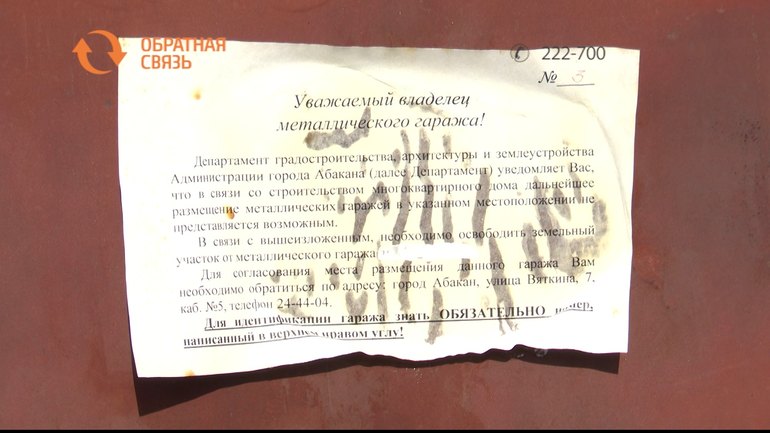 ОБРАТНАЯ
СВЯЗЬ
222-700
№ 5
Уважаемый владелец
металлического гаража!
Департамент градостроительства, архитектуры и землеустройства
Администрации города Абакана (далее Департамент) уведомляет Вас,
что в связи со строительством многоквартирного дома дальнейшее
размещение металлических гаражей в указанном местоположении не
представляется возможным.
В связи с вышеизложенным, необходимо освободить земельный
участок от металлического гаража
Для согласования места размещения данного гаража Вам
необходимо обратиться по адресу: город Абакан, улица Вяткина, 7,
каб. №5, телефон 24-44-04.
Для идентификации гаража знать ОБЯЗАТЕЛЬНО номер,
написанный в верхнем правом углу!